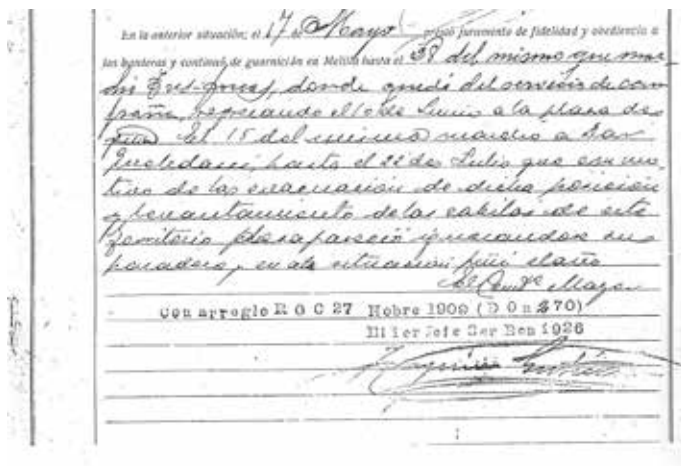 En la anterior situación; el 17 de Mayo prestó juramento de fidelidad y obediencia a
las banderas y continuó de guarnición en Melilla hasta el 28 del mismo que marchó
a donde quedó del servicio de cam
paña, regresando el 10 de Junio a la plaza de
El 15 del mismo marchó a Dar
hasta el 22 de Julio que con mo
tivo de la evacuación de dicha posición
y levantamiento de las cabilas de este
territorio desapareció ignorandose su
paradero, en ata situación finó el año
El Comte Mayor
Con arreglo R O C 27 Nobre 1909 (D O n 270)
El 1er Jefe Ser Ben 1926